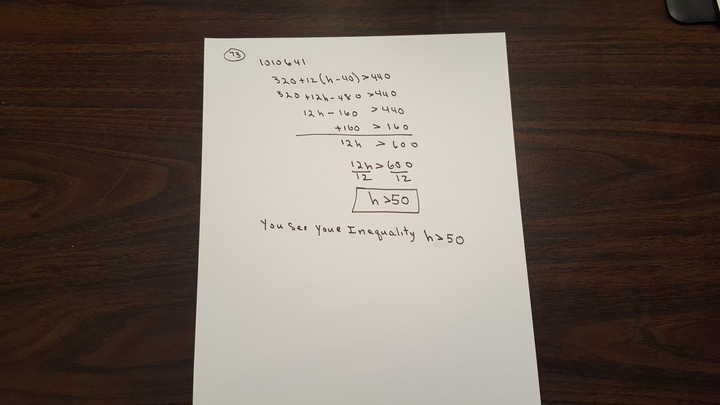 73
1010641
320+12(h-40)>440
320+12h-480>440
12h-160 >440
+160 >160
12h >600
12h>600
12 12
h>50
You see your Inequality h>50